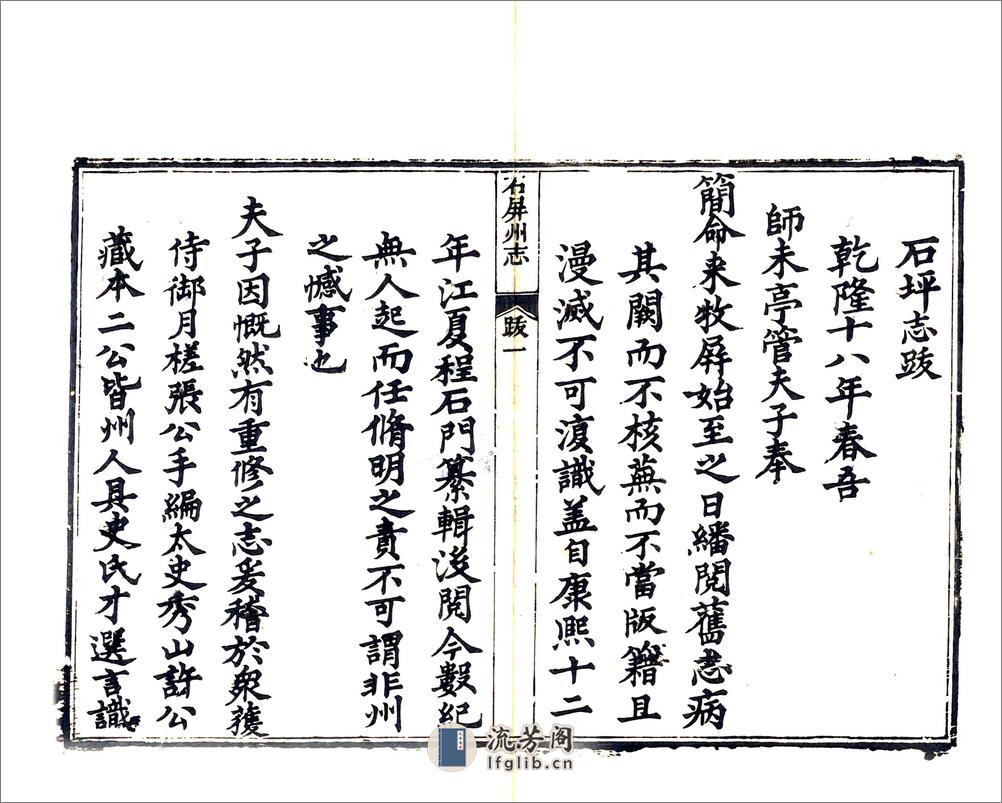 石坪志跋
乾隆十八年春吾
師未亭管夫子奉
簡命来牧屏始至之日繙閱舊志病
其闕而不核蕪而不當版籍且
漫滅不可復識盖自康熙十二
石屏州志
跋一
年江夏程石門纂輯後閱今數紀
無人起而任脩明之責不可謂非州
之憾事也
夫子因慨然有重修之志爰稽於衆獲
侍御月槎張公手編太史秀山許公
藏本二公皆州人具史氏才選言識
流芳阁
lfglib.cn